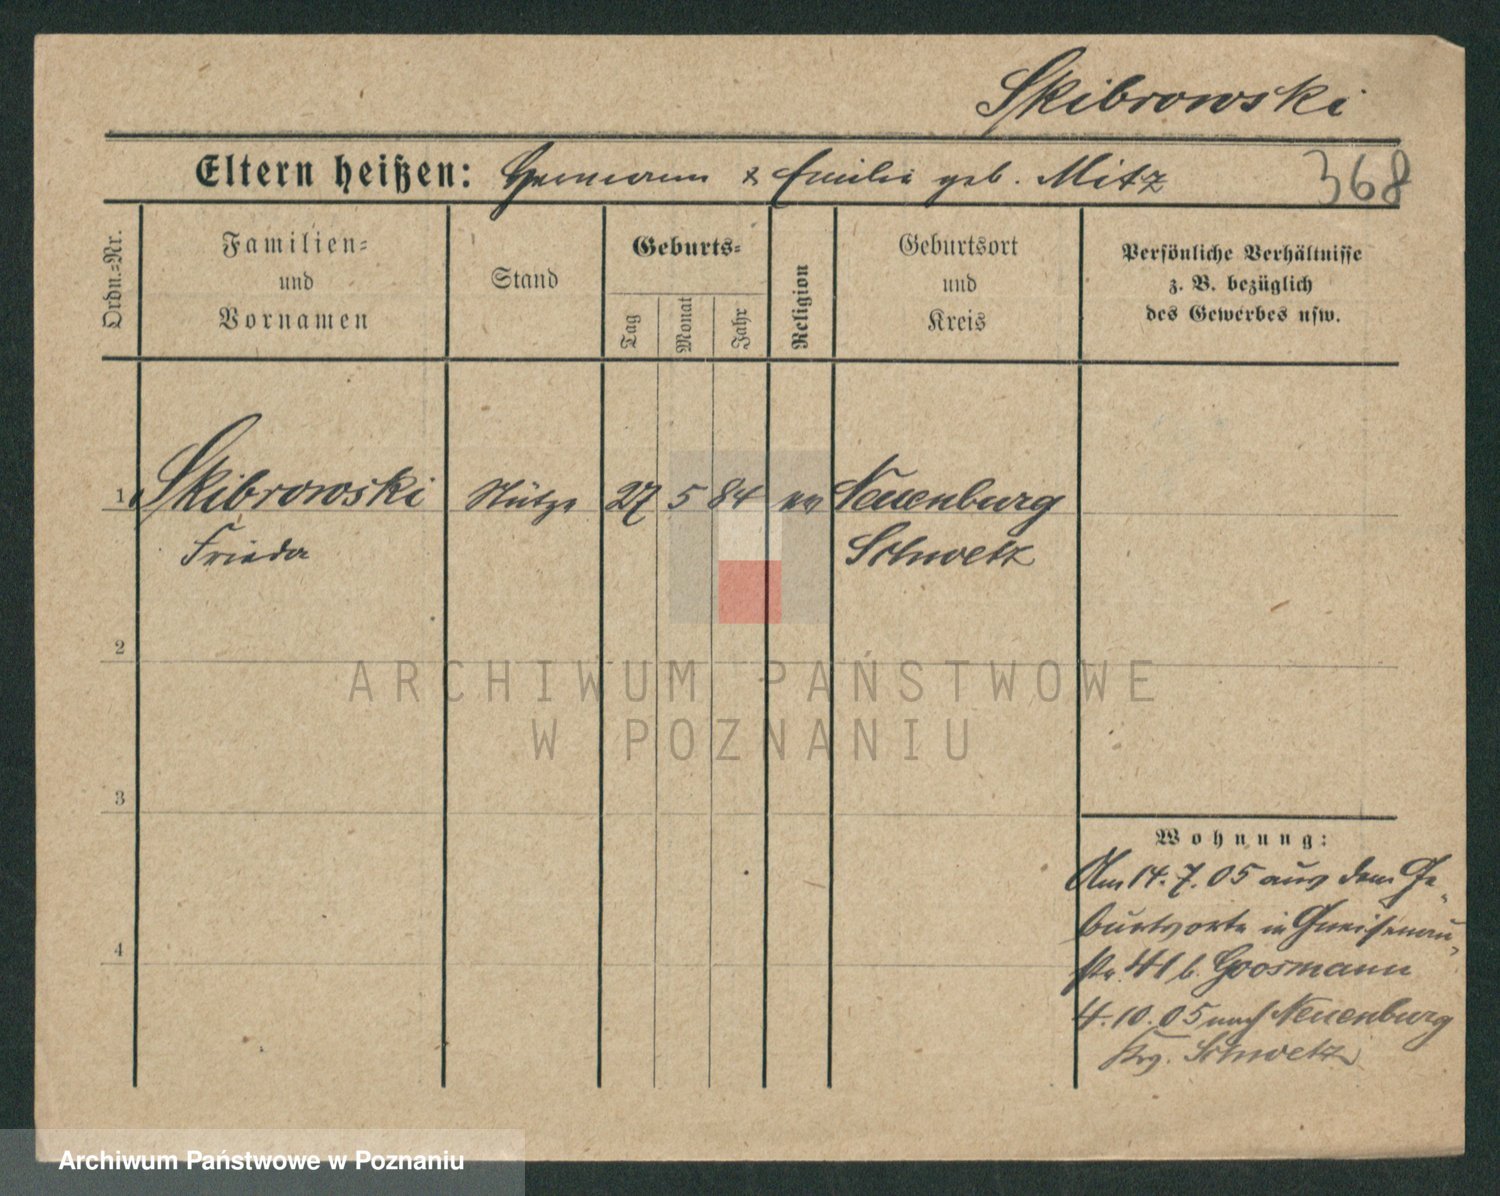 Skibrowski
Eltern heißen: Hermann & Emilie geb. Mitz
368
Ordn.-Nr.
Familien-
und
Vornamen
Stand
Geburts-
Tag
Monat
Jahr
Religion
Geburtsort
und
Kreis
Persönliche Verhältnisse
z. B. bezüglich
des Gewerbes usw.
1 Skibrowski Stütze 27 5 84 ev Neuenburg
Frieda Schwetz
2
ARCHIWUM PAŃSTWOWE
W POZNANIU
3
Wohnung:
Am 14. 7. 05 aus dem Ge-
burtsorte in Gneisenau-
str. 41 b. Goosmann
4
4. 10. 05 nach Neuenburg
Krs. Schwetz
Archiwum Państwowe w Poznaniu